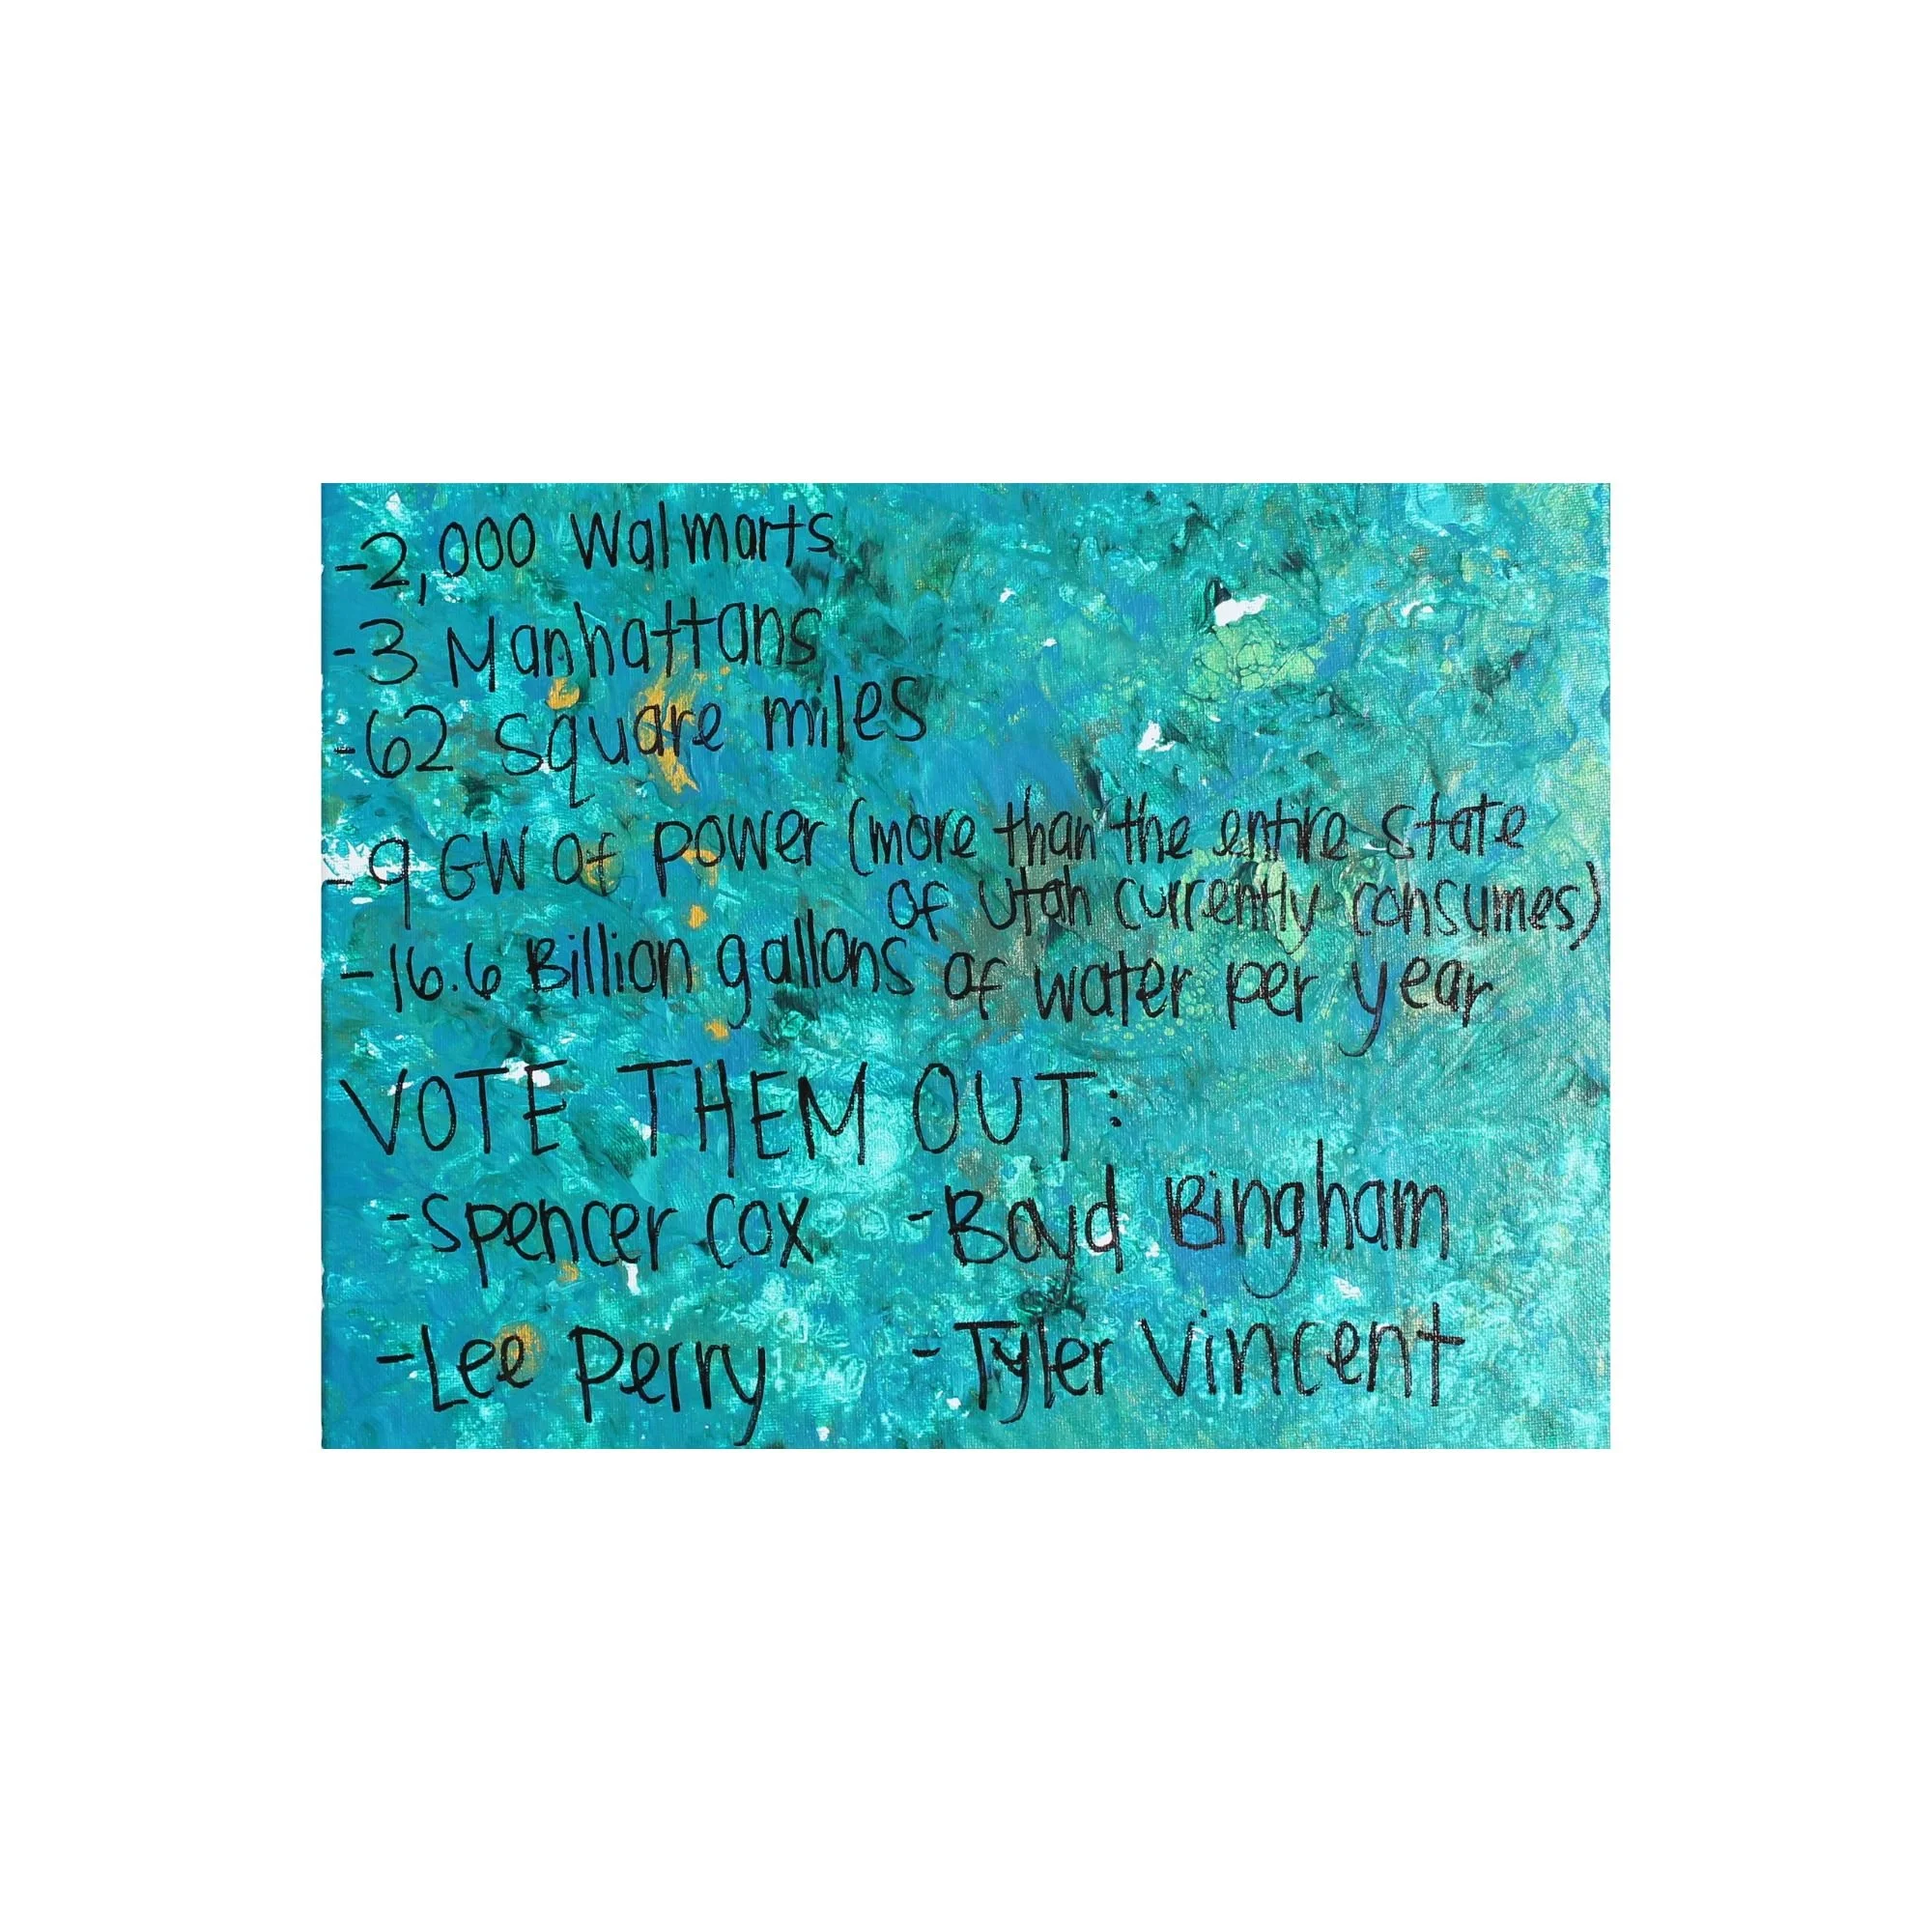 -2,000 Walmarts
-3 Manhattans
-62 square miles
-9 GW of power (more than the entire state
of Utah currently consumes)
-16.6 Billion gallons of water per year
VOTE THEM OUT:
-Spencer Cox -Boyd Bingham
-Lee Perry -Tyler Vincent